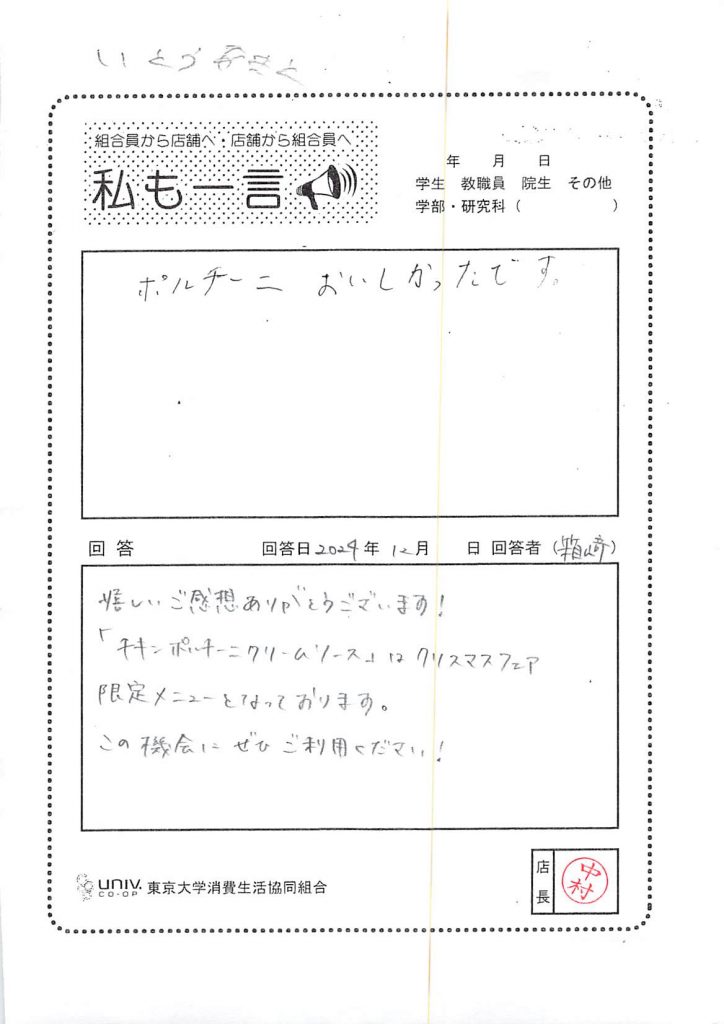 組合員から店舗へ・店舗から組合員へ
私も一言
年 月 日
学生 教職員 院生 その他
学部・研究科( )
ポルチーニ おいしかったです。
回答 回答日2024年 12月 日 回答者(箱崎)
嬉しいご感想ありがとうございます!
「チキンポルチーニクリームソース」はクリスマスフェア
限定メニューとなっております。
この機会にぜひご利用ください!
UNIV. CO-OP 東京大学消費生活協同組合
店長
中村